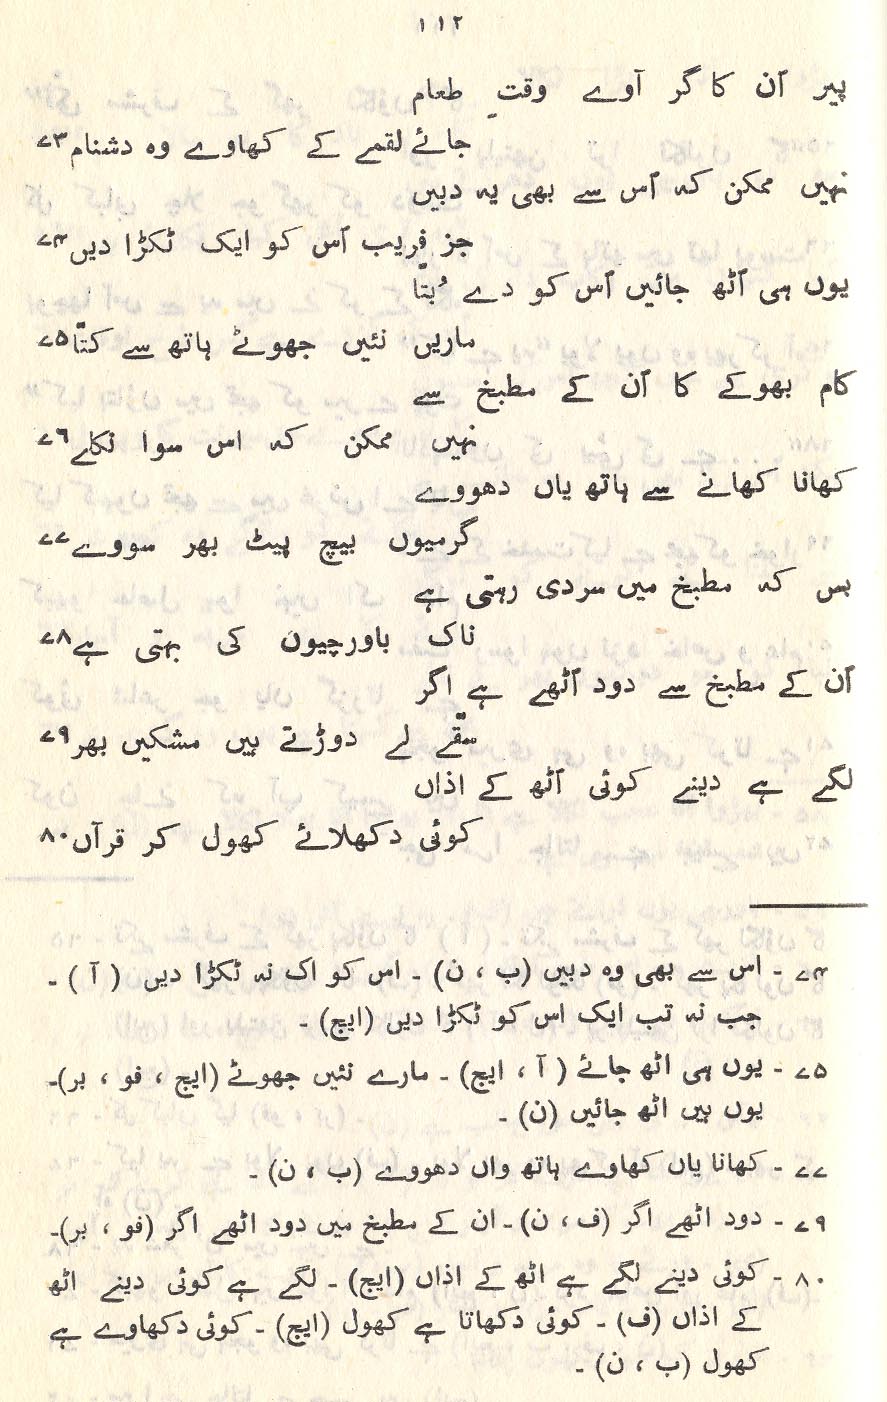 ۱۱۲
پیر اُن کا گر آوے وقتِ طعام
جائے لقمے کے کھاوے وہ دشنام ۷۳
نہیں ممکن کہ اُس سے بھی یہ دبیں
جز فریب اُس کو ایک ٹکڑا دیں ۷۴
یوں ہی اُٹھ جائیں اُس کو دے بُتّا
ماریں نئیں جھوٹے ہاتھ سے کتّا ۷۵
کام بھوکے کا اُن کے مطبخ سے
نہیں ممکن کہ اس سوا نکلے ۷۶
کھانا کھانے سے ہاتھ یاں دھووے
گرمیوں بیچ پیٹ بھر سووے ۷۷
بس کہ مطبخ میں سردی رہتی ہے
ناک باورچیوں کی بہتی ہے ۷۸
اُن کے مطبخ سے دود اُٹھے ہے اگر
سقّے لے دوڑتے ہیں مشکیں بھر ۷۹
لگے ہے دینے کوئی اُٹھ کے اذاں
کوئی دکھلائے کھول کر قرآں ۸۰
۷۴ - اس سے بھی وہ دبیں (ب ، ن) - اس کو اک نہ ٹکڑا دیں ( آ ) -
جب نہ تب ایک اس کو ٹکڑا دیں (ایچ) -
۷۵ - یوں ہی اٹھ جائے ( آ ، ایچ) - مارے نئیں جھوٹے (ایچ ، فو ، بر)-
یوں ہیں اٹھ جائیں (ن) -
۷۷ - کھانا یاں کھاوے ہاتھ واں دھووے (ب ، ن) -
۷۹ - دود اٹھے اگر (ف ، ن) - ان کے مطبخ میں دود اٹھے اگر (فو ، بر)-
۸۰ - کوئی دینے لگے ہے اٹھ کے اذاں (ایچ) - لگے ہے کوئی دینے اٹھ
کے اذاں (ف) - کوئی دکھاتا ہے کھول (ایچ) - کوئی دکھاوے ہے
کھول (ب ، ن) -